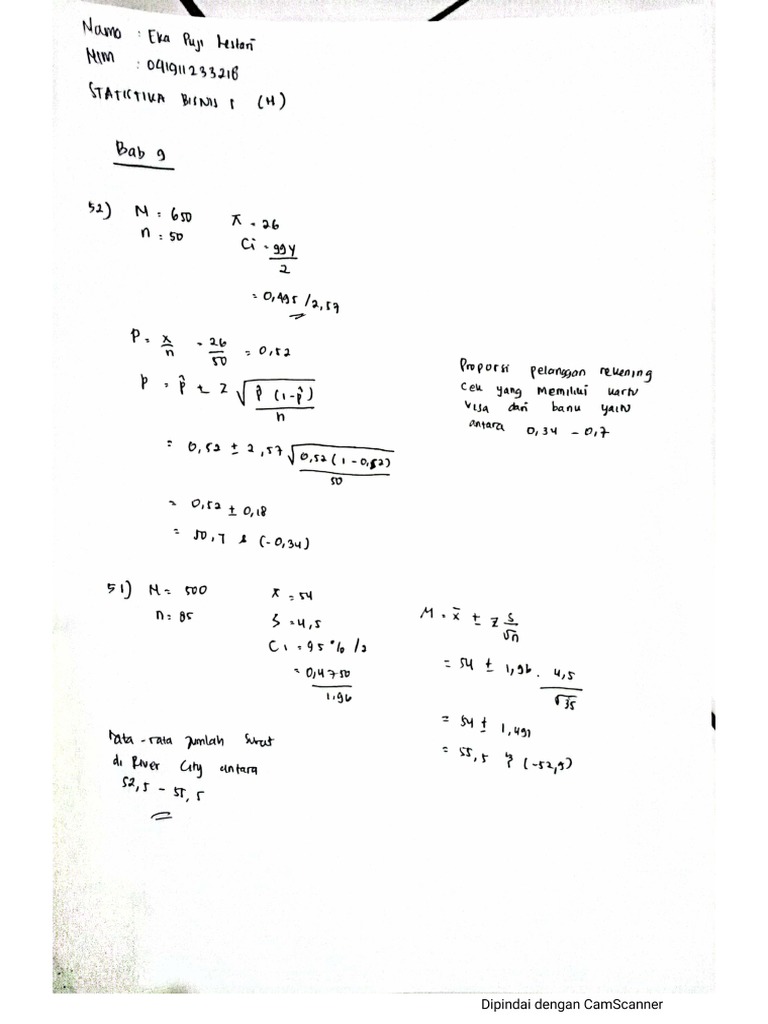 Nama : Eka Puji Lestari
NIM : 041911233218
STATISTIKA BISNIS 1 (H)
Bab 9
52) N = 650
n = 50
x = 26
Ci = 99%/2
= 0,495 / 2,57
P = x/n = 26/50 = 0,52
p = p̂ ± z √(p̂ (1-p̂)/n)
= 0,52 ± 2,57 √(0,52 (1 - 0,52)/50)
= 0,52 ± 0,18
= 50,7 & (-0,34)
Proporsi pelanggan rekening
cek yang memiliki kartu
visa dari bank yaitu
antara 0,34 - 0,7
51) N = 500
n = 85
x̄ = 54
S = 4,5
Ci = 95% /2
= 0,4750/1.96
Rata-rata jumlah surat
di River City antara
52,5 - 55,5
M = x̄ ± z s/√n
= 54 ± 1,96 . 4,5/√35
= 54 ± 1,491
= 55,5 & (-52,5)
Dipindai dengan CamScanner